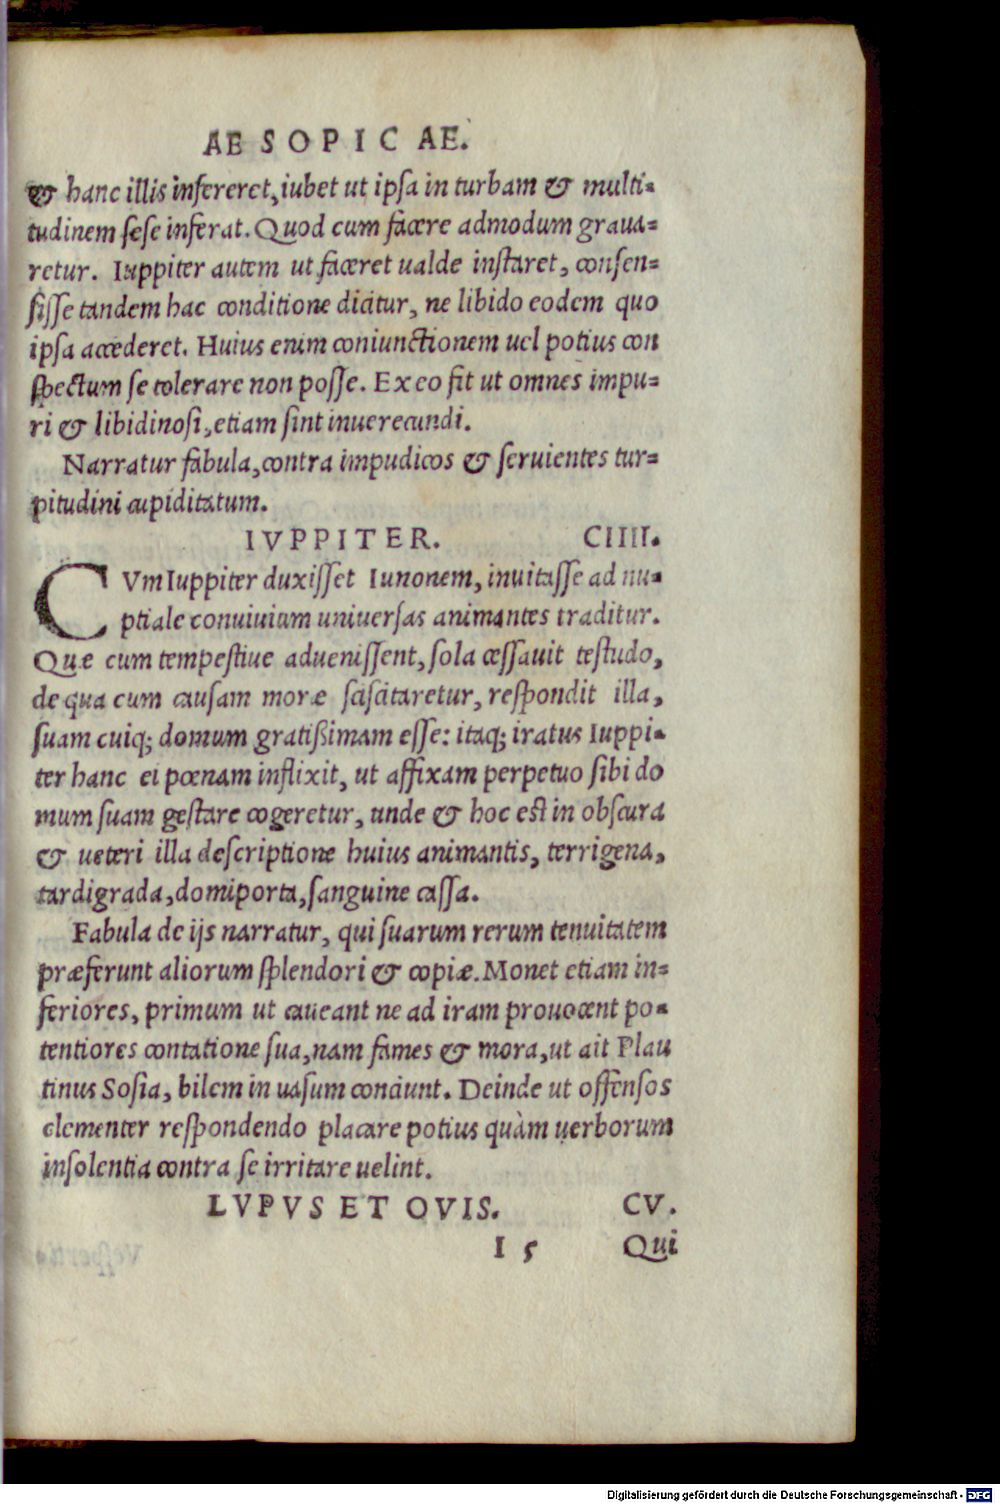 AESOPICAE.
& hanc illis insereret, iubet ut ipsa in turbam & multi-
tudinem sese inserat. Quod cum facere admodum graua-
retur. Iuppiter autem ut faceret ualde instaret, consen-
sisse tandem hac conditione dicitur, ne libido eodem quo
ipsa accederet. Huius enim coniunctionem uel potius con
spectum se tolerare non posse. Ex eo fit ut omnes impu-
ri & libidinosi, etiam sint inuerecundi.
Narratur fabula, contra impudicos & seruientes tur-
pitudini cupiditatum.
IVPPITER. CIIII.
CVm Iuppiter duxisset Iunonem, inuitasse ad nu-
ptiale conuiuium uniuersas animantes traditur.
Quæ cum tempestiue aduenissent, sola cessauit testudo,
de qua cum causam moræ sciscitaretur, respondit illa,
suam cuiq; domum gratißimam esse: itaq; iratus Iuppi-
ter hanc ei pœnam inflixit, ut affixam perpetuo sibi do
mum suam gestare cogeretur, unde & hoc est in obscura
& ueteri illa descriptione huius animantis, terrigena,
tardigrada, domiporta, sanguine cassa.
Fabula de ijs narratur, qui suarum rerum tenuitatem
præferunt aliorum splendori & copiæ. Monet etiam in-
feriores, primum ut caueant ne ad iram prouocent po-
tentiores contatione sua, nam fames & mora, ut ait Plau
tinus Sosia, bilem in uasum conciunt. Deinde ut offensos
clementer respondendo placare potius quàm uerborum
insolentia contra se irritare uelint.
LVPVS ET OVIS. CV.
I 5 Qui
Digitalisierung gefördert durch die Deutsche Forschungsgemeinschaft - DFG